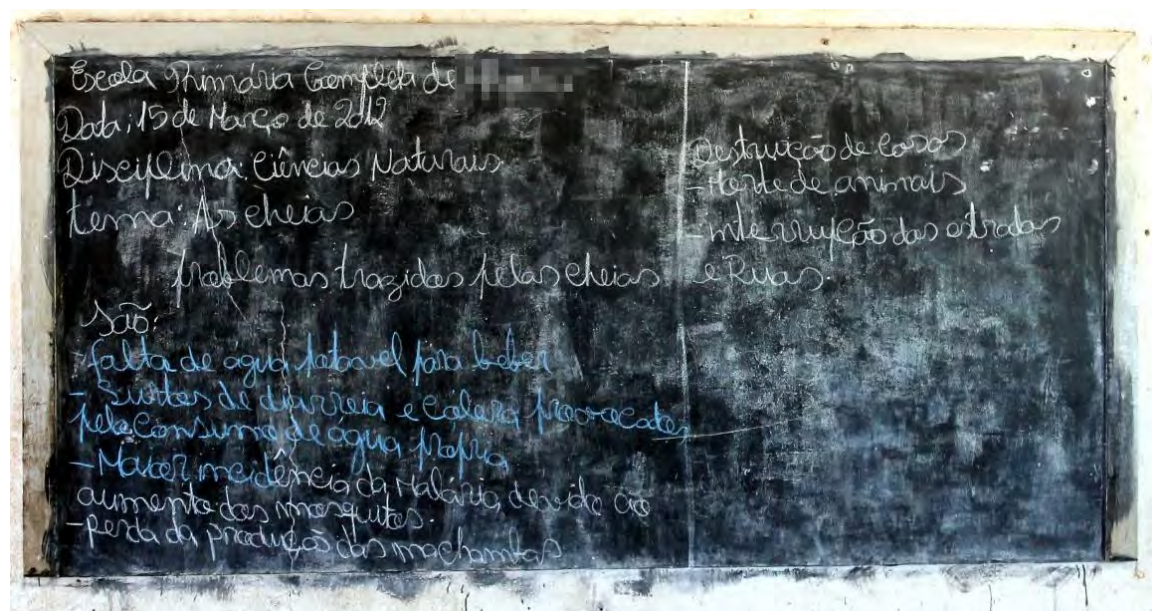 Escola Primária Completa de
Data: 15 de Março de 2012
Disciplina: Ciências Naturais
tema: As cheias
Problemas trazidos pelas cheias
São:
- falta de agua potavel para beber
- Surtos de diarreia e Colera, provocates
pelo Consumo de água
- Maior incidência da Malária, devido ao
aumento dos mosquitos.
- perda da produção das machambas
Destruição de Casas
- Morte de animais
- interrupção das estradas
e Ruas.